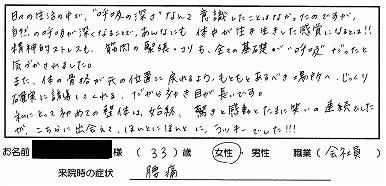 日々の生活の中で、"呼吸の深さ"なんて意識したことはなかったのですが、
自然の呼吸が深くなることで、あんなにも体中が生き生きした感覚になるとは!!
精神的ストレスも、筋肉の緊張・コリも、全ての基礎が"呼吸"だったと
気づかされました。
また、体の骨格が元の位置に戻れるよう、もともとあるべき場所へ、じっくり
確実に誘導してくれる、だから効き目が長いです。
私にとって初めての整体は、始終、驚きと感動とたまに笑いの連続でした
が、こちらに出会えて、ほんとにほんとに、ラッキーでした!!!
お名前 様 (33)歳 女性・男性 職業(会社員)
来院時の症状 腰痛